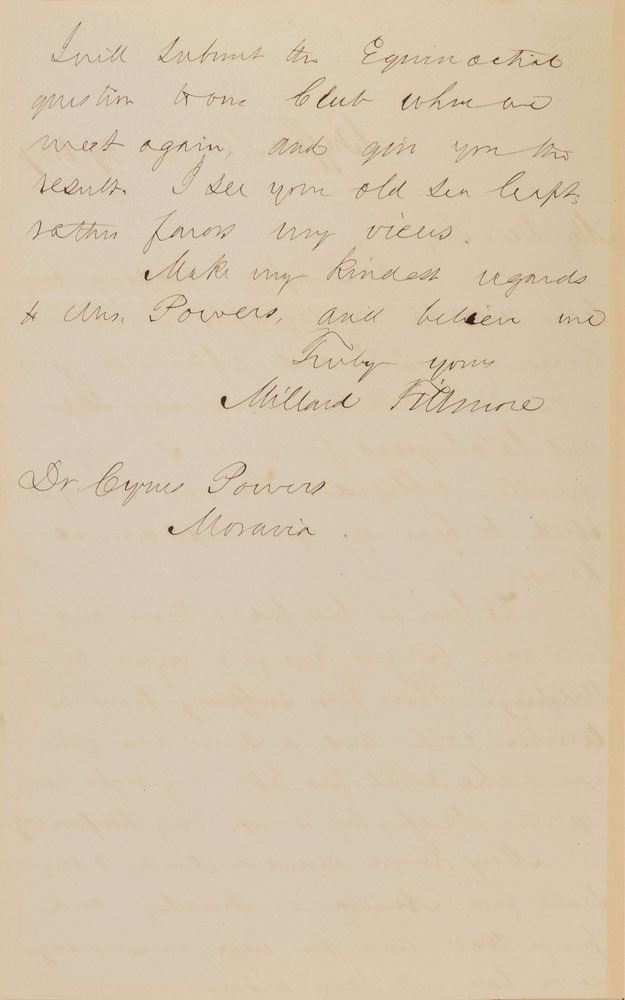 I will submit the Equinoctial
question to our Club when we
meet again, and give you the
result. I see your old sea Capt.
rather favors my views.
Make my kindest regards
to Mrs. Powers, and believe me
Truly yours
Millard Fillmore
Dr. Cyrus Powers
Moravia.